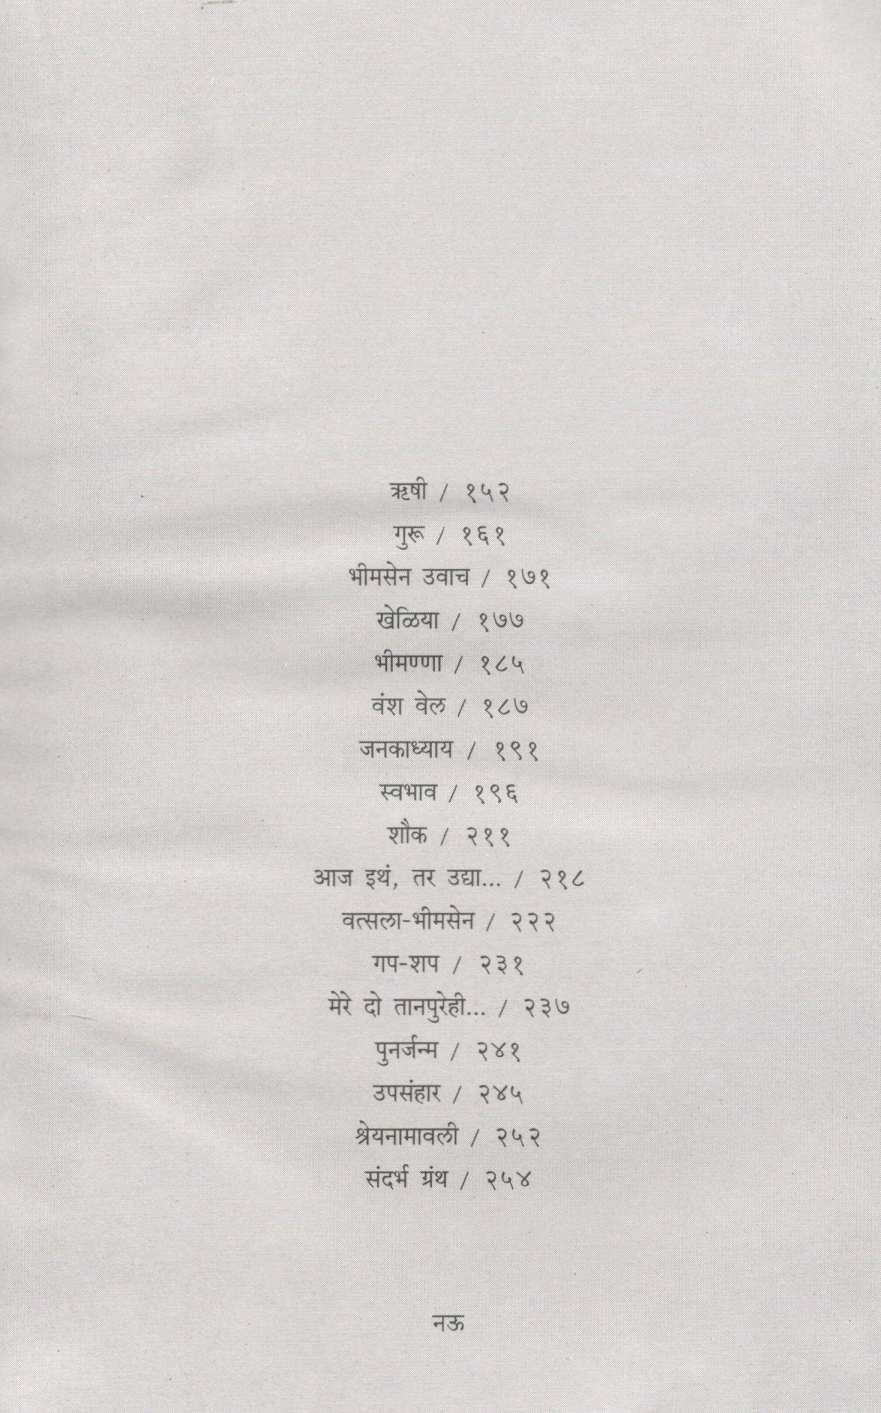 ऋषी / १५२
गुरू / १६१
भीमसेन उवाच / १७१
खेळिया / १७७
भीमण्णा / १८५
वंश वेल / १८७
जनकाध्याय / १९१
स्वभाव / १९६
शौक / २११
आज इथं, तर उद्या... / २१८
वत्सला-भीमसेन / २२२
गप-शप / २३१
मेरे दो तानपुरेही... / २३७
पुनर्जन्म / २४१
उपसंहार / २४५
श्रेयनामावली / २५२
संदर्भ ग्रंथ / २५४
नऊ